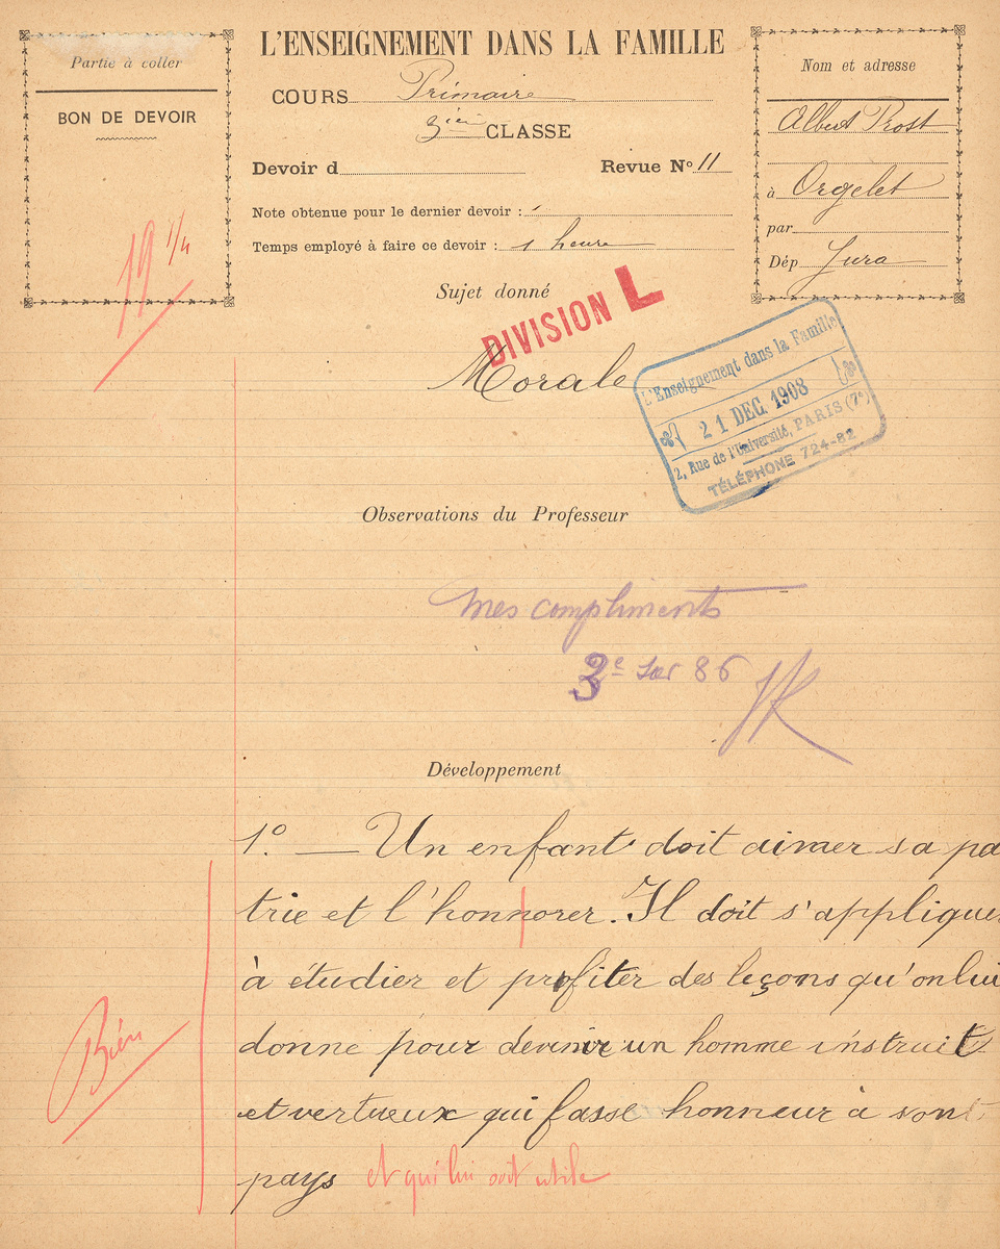 L'ENSEIGNEMENT DANS LA FAMILLE
Partie à coller
BON DE DEVOIR
19 1/4
COURS Primaire
3ième CLASSE
Devoir d
Revue N° 11
Note obtenue pour le dernier devoir :
Temps employé à faire ce devoir : 1 heure
Nom et adresse
Albert Prost
à Orgelet
par
Dép Jura
Sujet donné
DIVISION L
Morale
L'Enseignement dans la Famille
21 DEC. 1908
2, Rue de l'Université, PARIS (7e)
TÉLÉPHONE 724-82
Observations du Professeur
mes compliments
3e sur 86
Développement
1°. — Un enfant doit aimer sa pa
trie et l'honnorer. Il doit s'appliquer
à étudier et profiter des leçons qu'on lui
donne pour devenir un homme instruit
et vertueux qui fasse honneur à sont
pays et qui lui soit utile
Bien